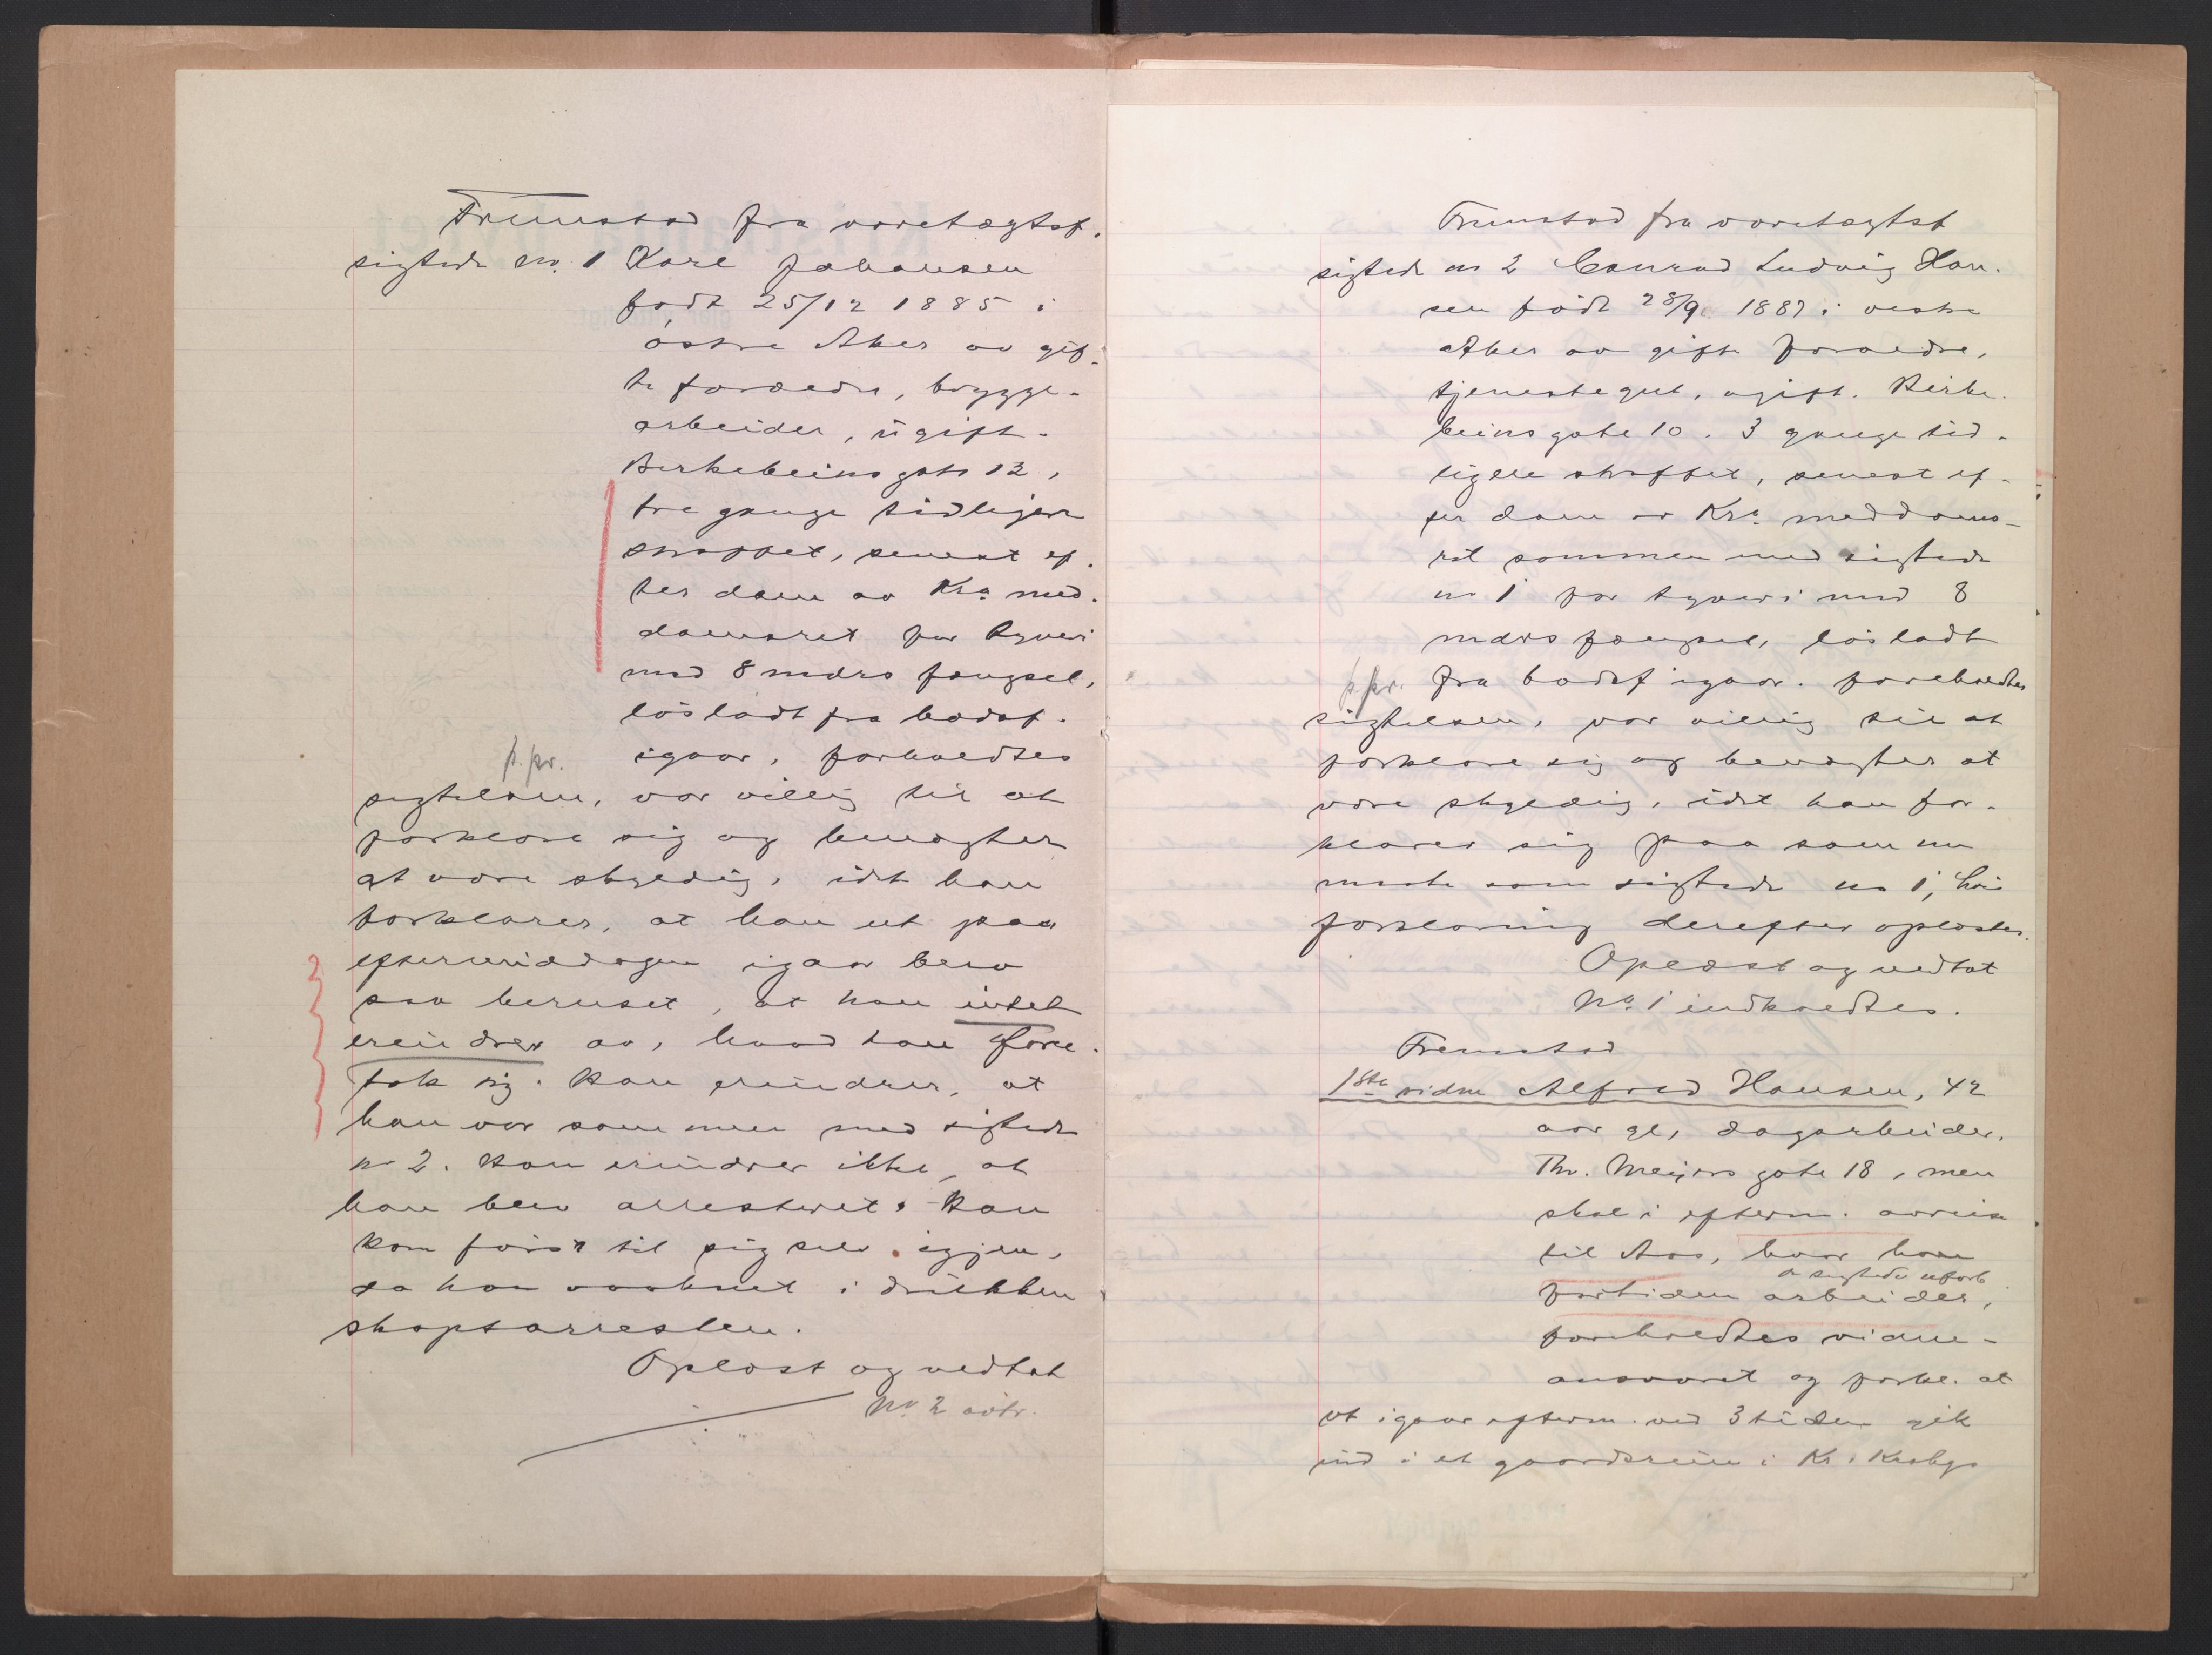 Fremstod fra varetægtsf.
sigtede no. 1 Karl Johansen
født 25/12 1885 i
østre Aker av gif-
te forældre, brygge-
arbeider, ugift.
Birkebeinsgate 12,
tre gange tidligere
straffet, senest ef-
ter dom av Kra med-
domsret for tyveri
med 8 mdrs fængsel,
løsladt fra bodsf.
p.pr. igaar, forholdtes
sigtelsen, var villig til at
forklare sig og benegter
at være skyldig, idet han
forklarer, at han ut paa
eftermiddagen igaar blev
saa beruset, at han intet
erindrer av, hvad han fore-
tok sig. Han erindrer, at
han var sammen med sigtede
nr 2. Han erindrer ikke, at
han blev arrestert. Han
kom først til sig selv igjen,
da han vaaknet i drukken
skapsarresten.
Oplæst og vedtat
No. 2 avtr.
Fremstod fra varetægtsf
sigtede nr 2 Conrad Ludvig Han-
sen født 28/9 1887 i vestre
Aker av gifte forældre,
tjenestegut, ugift. Birke-
beinsgate 10. 3 gange tid-
ligere straffet, senest ef-
ter dom av Kra meddoms-
ret sammen med sigtede
nr 1 for tyveri med 8
mdrs fængsel, løsladt
p.pr. fra bodsf igaar. foreholdtes
sigtelsen, var villig til at
forklare sig og benegter at
være skyldig, idet han for-
klarer sig paa samme
maate som sigtede no 1, hvis
forklaring derefter oplæstes.
Oplæst og vedtat
No. 1 indkaldtes.
Fremstod
1ste vidne Alfred Hansen, 42
aar gl, dagarbeider,
Thv. Meyers gate 18, men
skal i efterm. avreise
til Aas, hvor han
fortiden arbeider,
foreholdtes vidne-
ansvaret og forkl. at
at igaar efterm. ved 3 tiden gik
ind i et gaardsrum i Kr. Krohgs